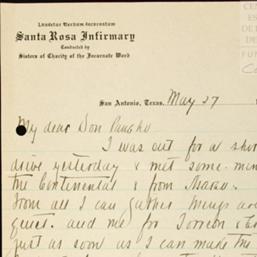 Laudetur Verbum Incarnatum
Santa Rosa Infirmary
Conducted by
Sisters of Charity of the Incarnate Word
San Antonio, Texas, May 27
My dear Don Pancho
I was out for a shor
drive yesterday & met some
the Continental & from
From all I can gather things are
quiet. and me for Torreon &
just as soon as I can made the